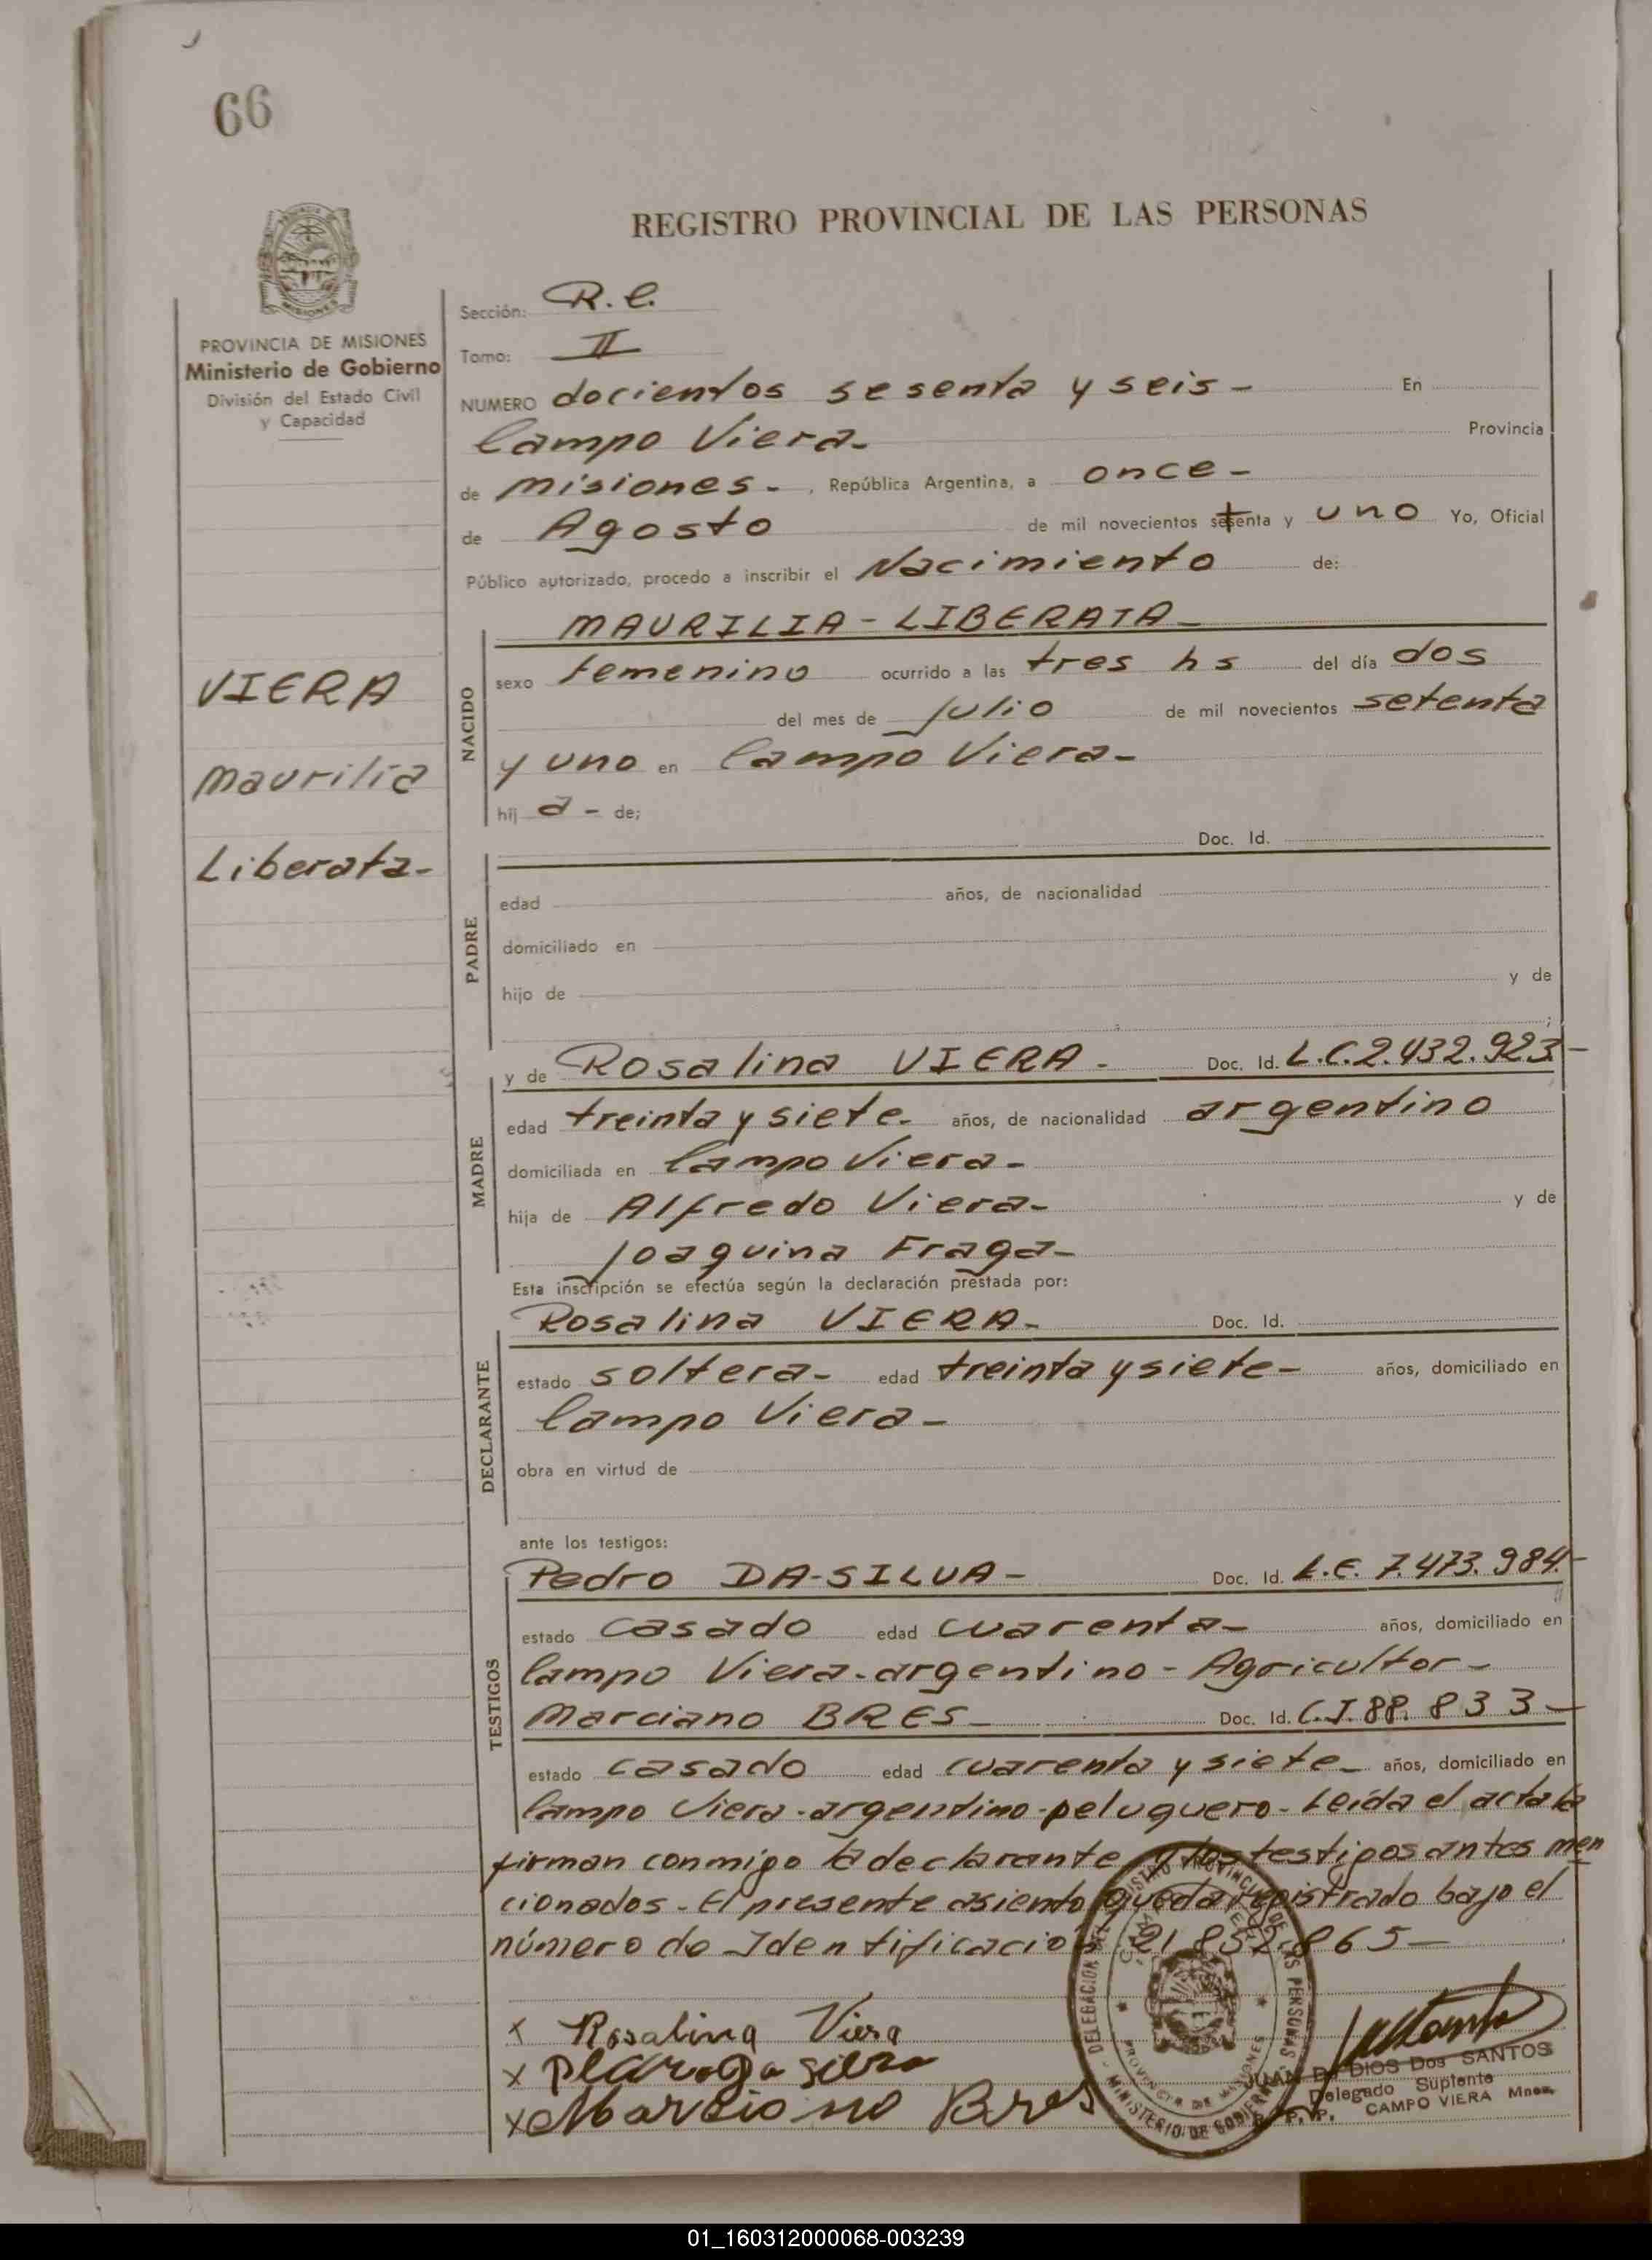 66
REGISTRO PROVINCIAL DE LAS PERSONAS
PROVINCIA DE MISIONES
Ministerio de Gobierno
División del Estado Civil
y Capacidad
Sección: R. C.
Tomo: II
NUMERO docientos sesenta y seis - En
Campo Viera -
Provincia
de Misiones - , República Argentina, a once -
de Agosto de mil novecientos setenta y uno Yo, Oficial
Público autorizado, procedo a inscribir el Nacimiento de:
VIERA
Maurilia
Liberata -
NACIDO
MAURILIA - LIBERATA -
sexo femenino ocurrido a las tres hs del día dos
del mes de Julio de mil novecientos setenta
y uno en Campo Viera -
hij a - de;
PADRE
Doc. Id.
edad años, de nacionalidad
domiciliado en
hijo de y de
;
MADRE
y de Rosalina VIERA - Doc. Id. L.C. 2.432.923 -
edad treinta y siete - años, de nacionalidad argentino
domiciliada en Campo Viera -
hija de Alfredo Viera - y de
Joaquina Fraga -
Esta inscripción se efectúa según la declaración prestada por:
DECLARANTE
Rosalina VIERA - Doc. Id.
estado soltera - edad treinta y siete - años, domiciliado en
Campo Viera -
obra en virtud de
ante los testigos:
TESTIGOS
Pedro DA-SILVA - Doc. Id. L.E. 7.473.984 -
estado casado edad cuarenta - años, domiciliado en
Campo Viera - argentino - Agricultor -
Marciano BRES - Doc. Id. C.I. 88.833 -
estado casado edad cuarenta y siete - años, domiciliado en
Campo Viera - argentino - peluquero - Leída el acta la
firman conmigo la declarante y los testigos antes men
cionados - El presente asiento queda registrado bajo el
número de Identificación 21.852.865 -
x Rosalina Viera
x
x Marciano Bres
JUAN DE DIOS Dos SANTOS
Delegado Suplente
R. P. P. CAMPO VIERA Mnes.
DELEGACION DEL REGISTRO PROVINCIAL DE LAS PERSONAS
PROVINCIA DE MISIONES
MINISTERIO DE GOBIERNO
01_160312000068-003239